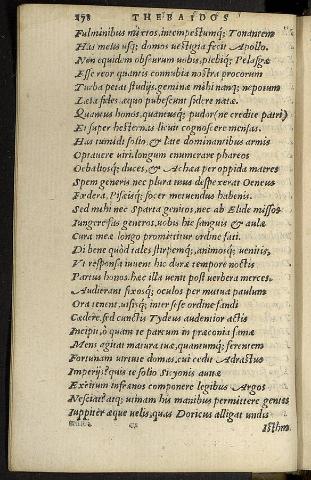 178 THEBAIDOS
Fulminibus mixtos, intempestumq; Tonantem
Has metus usq; domos uestigia fecit Apollo.
Non equidem obscurum uobis, plebiq; Pelasgæ
Esse reor quantis connubia nostra procorum
Turba petat studijs, geminæ mihi nanq; nepotum
Læta fides, æquo pubescunt sidere natæ.
Quantus honos, quantusq; pudor (ne credite patri)
Et super hesternas licuit cognoscere mensas.
Has tumidi solio, & late dominantibus armis
Optauere uiri, longum enumerare phareos
Oebaliosq; duces, & Achæa per oppida matres
Spem generis nec plura tuus despexerat Oeneus
Fœdera, Pisæisq; socer metuendus habenis.
Sed mihi nec Sparta genitos, nec ab Elide missos
Iungere fas generos, uobis hic sanguis & aulæ
Cura meæ longo promittitur ordine fati.
Di bene quòd tales stirpemq;, animosq; uenitis,
Vt responsa iuuent hic duræ tempore noctis
Partus honos, hæc illa uenit post uerbera merces.
Audierant fixosq; oculos per mutua paulum
Ora tenent, uisiq; inter sese ordine fandi
Cædere, sed cunctis Tydeus audentior actis
Incipit, ô quam te parcum in præconia famæ
Mens agitat matura tuæ, quantumq; ferentem
Fortunam uirtute domas, cui cedit Adrastus
Imperijs? quis te solio Sicyonis auitæ
Excitum infrænos componere legibus Argos
Nesciat? atq; utinam his manibus permittere gentes
Iuppiter æque uelis, quas Doricus alligat undis
Isthm